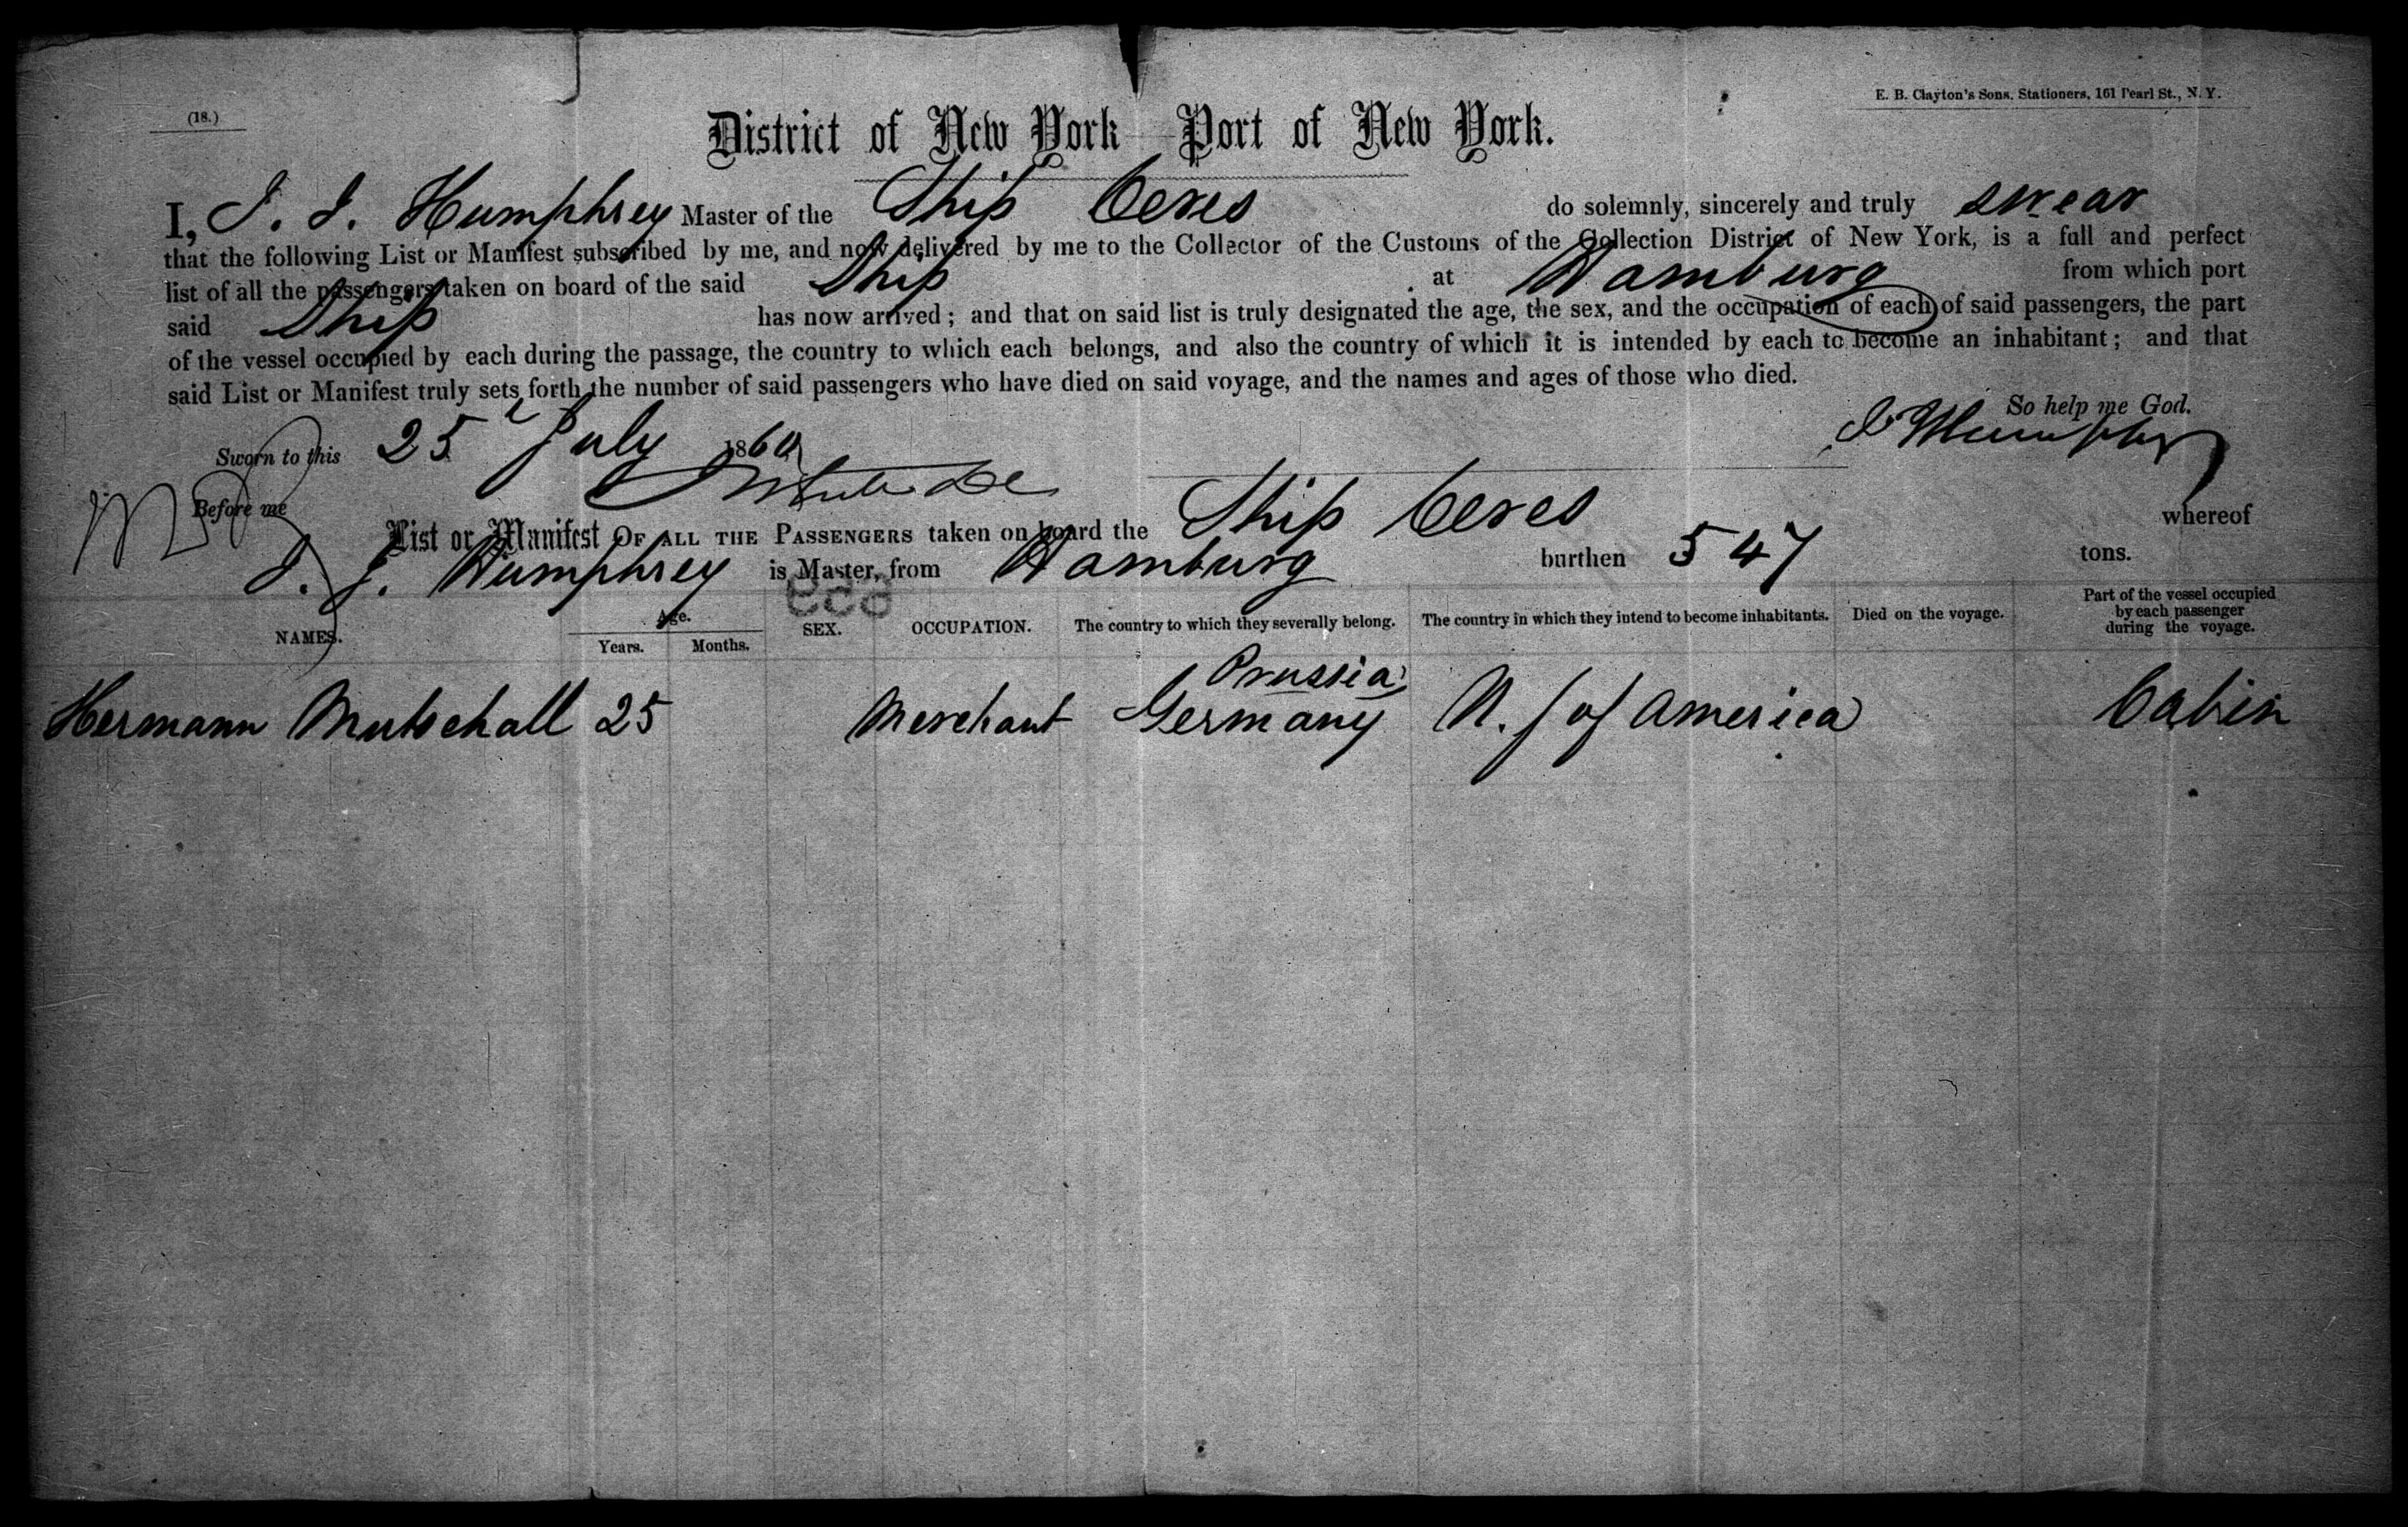 (18.)
E. B. Clayton's Sons, Stationers, 161 Pearl St., N. Y.
District of New York Port of New York.
I, J. J. Humphrey Master of the Ship Ceres do solemnly, sincerely and truly swear
that the following List or Manifest subscribed by me, and now delivered by me to the Collector of the Customs of the Collection District of New York, is a full and perfect
list of all the passengers taken on board of the said Ship at Hamburg from which port
said Ship has now arrived; and that on said list is truly designated the age, the sex, and the occupation of each of said passengers, the part
of the vessel occupied by each during the passage, the country to which each belongs, and also the country of which it is intended by each to become an inhabitant; and that
said List or Manifest truly sets forth the number of said passengers who have died on said voyage, and the names and ages of those who died.
So help me God.
Sworn to this 25 July 1860 J Humphrey
Before me
List or Manifest OF ALL THE PASSENGERS taken on board the Ship Ceres whereof
J. J. Humphrey is Master, from Hamburg burthen 547 tons.
659
NAMES. Age. Years. Months. SEX. OCCUPATION. The country to which they severally belong. The country in which they intend to become inhabitants. Died on the voyage. Part of the vessel occupied by each passenger during the voyage.
Prussia
Hermann Mutschall 25 Merchant Germany U. S of America Cabin